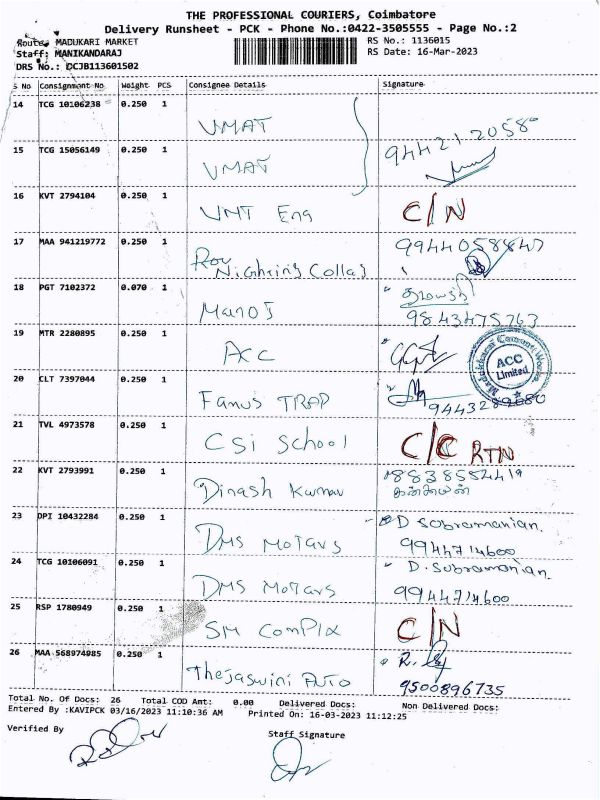 THE PROFESSIONAL COURIERS, Coimbatore
Delivery Runsheet - PCK - Phone No.:0422-3505555 - Page No.:2
Route: MADUKARI MARKET
RS No.: 1136015
Staff: MANIKANDARAJ
RS Date: 16-Mar-2023
DRS No.: DCJB113601502
S No Consignment No Weight PCS Consignee Details Signature
14 TCG 10106238 0.250 1 VMAT
15 TCG 15056149 0.250 1 VMAT 9442120580
16 KVT 2794104 0.250 1 VMT Eng C/N
17 MAA 941219772 0.250 1 Rov Nightring Collag 9944058847
18 PGT 7102372 0.070 1 Manoj 9843475763
19 MTR 2280895 0.250 1 ACC
Madukkarai Cement Works
ACC Limited
20 CLT 7397044 0.250 1 Fanus TRAP 9443289080
21 TVL 4973578 0.250 1 CSi School C/C RTN
22 KVT 2793991 0.250 1 Dinash Kumar 8838552419
23 DPI 10432284 0.250 1 DMS MoTars D Subramanian.
9944714600
24 TCG 10106091 0.250 1 DMS MoTars D. Subramanian.
9944714600
25 RSP 1780949 0.250 1 SM ComPlx C/N
26 MAA 568974985 0.250 1 Thejaswini AUTO R.
9500896735
Total No. Of Docs: 26 Total COD Amt: 0.00 Delivered Docs: Non Delivered Docs:
Entered By :KAVIPCK 03/16/2023 11:10:36 AM Printed On: 16-03-2023 11:12:25
Verified By Staff Signature